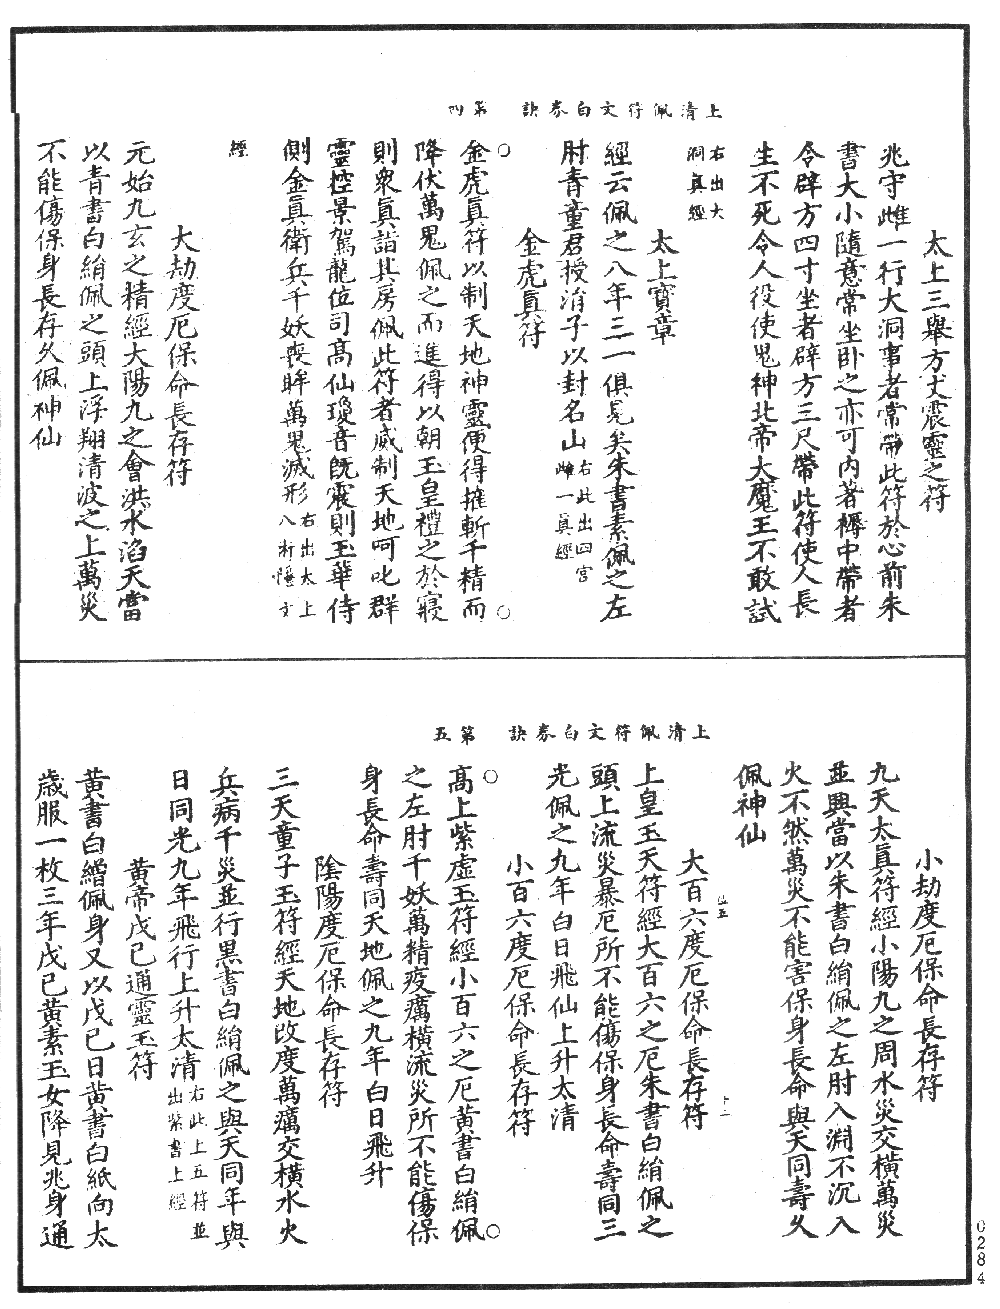 上清佩符文白券訣　第四
太上三舉方丈震靈之符
兆守雌一行大洞事者常帶此符於心前朱
書大小隨意常坐卧之亦可內著褥中帶者
令辟方四寸坐者辟方三尺帶此符使人長
生不死令人役使鬼神北帝大魔王不敢試
右出大
洞真經
太上寶章
經云佩之八年三一俱見矣朱書素佩之左
肘青童君授涓子以封名山右此出四宮
雌一真經
金虎真符
金虎真符以制天地神靈便得摧斬千精而
降伏萬鬼佩之而進得以朝玉皇禮之於寢
則衆真詣其房佩此符者威制天地呵叱群
靈控景駕龍位司高仙瓊音既震則玉華侍
側金真衛兵千妖喪眸萬鬼滅形右出太上
八術隱文
經
大劫度厄保命長存符
元始九玄之精經大陽九之會洪水滔天當
以青書白絹佩之頭上浮翔清波之上萬災
不能傷保身長存久佩神仙
上清佩符文白券訣　第五
小劫度厄保命長存符
九天太真符經小陽九之周水災交橫萬災
並興當以朱書白絹佩之左肘入淵不沉入
火不然萬災不能害保身長命與天同壽久
佩神仙
大百六度厄保命長存符
上皇玉天符經大百六之厄朱書白絹佩之
頭上流災暴厄所不能傷保身長命壽同三
光佩之九年白日飛仙上升太清
小百六度厄保命長存符
高上紫虛玉符經小百六之厄黃書白絹佩
之左肘千妖萬精疫癘橫流災所不能傷保
身長命壽同天地佩之九年白日飛升
陰陽度厄保命長存符
三天童子玉符經天地改度萬癘交橫水火
兵病千災並行黑書白絹佩之與天同年與
日同光九年飛行上升太清右此上五符並
出紫書上經
黃帝戊己通靈玉符
黃書白繒佩身又以戊己日黃書白紙向太
歲服一枚三年戊己黃素玉女降見兆身通
0284